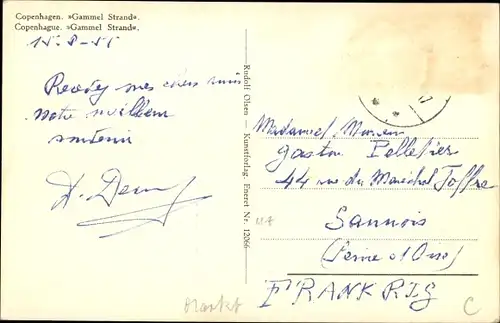 Copenhagen. »Gammel Strand«.
Copenhague. »Gammel Strand«.
15-8-55
mes chers amis
notre meilleur
souvenir
Rudolf Olsen — Kunstforlag. Eneret Nr. 12066
Madame, Monsieur
Gaston Pelletier
44 rue du Maréchal Joffre
Sannois
(Seine et Oise)
FRANKRIG
Markt
C